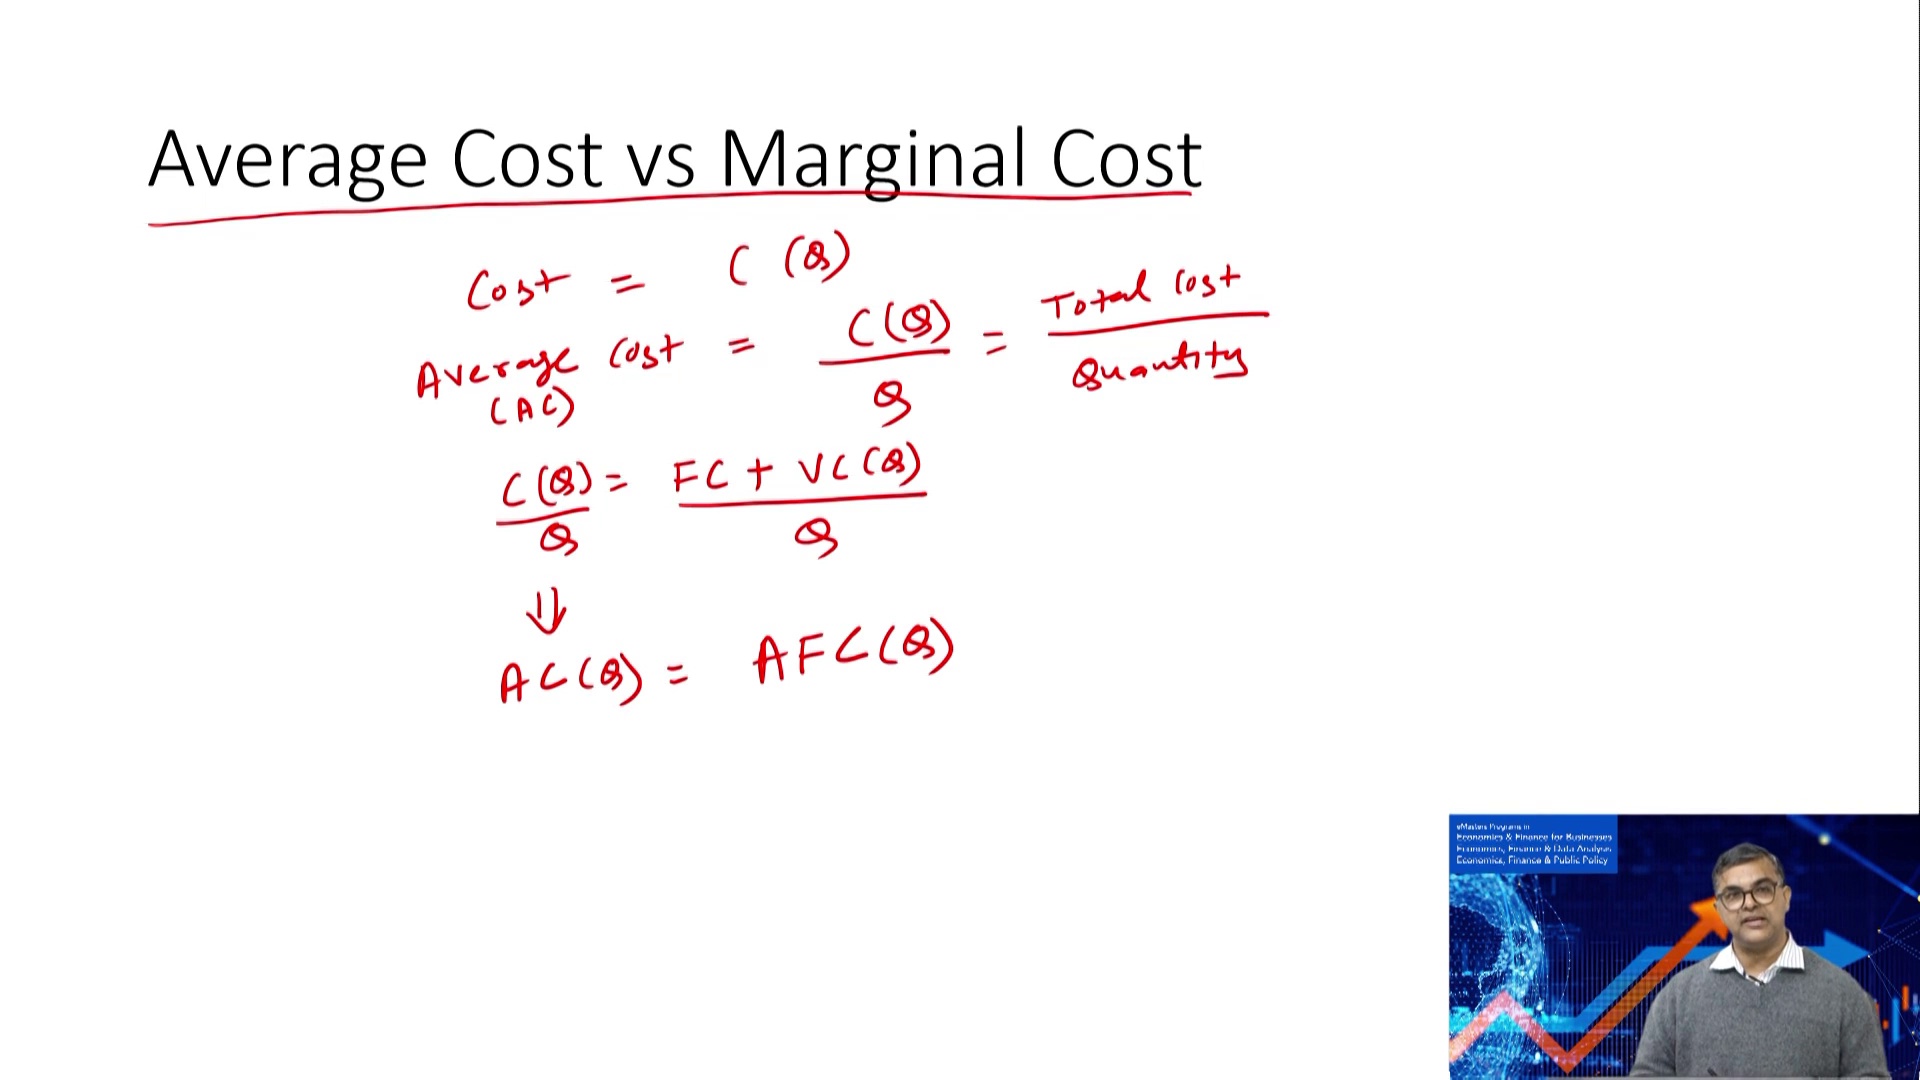 Average Cost vs Marginal Cost
Cost = C (Q)
Average Cost = C(Q) / Q = Total Cost / Quantity
(AC)
C(Q) / Q = FC + VC(Q) / Q
⇓
AC(Q) = AFC(Q)
eMasters Programs in
Economics & Finance for Businesses
Economics, Finance & Data Analysis
Economics, Finance & Public Policy